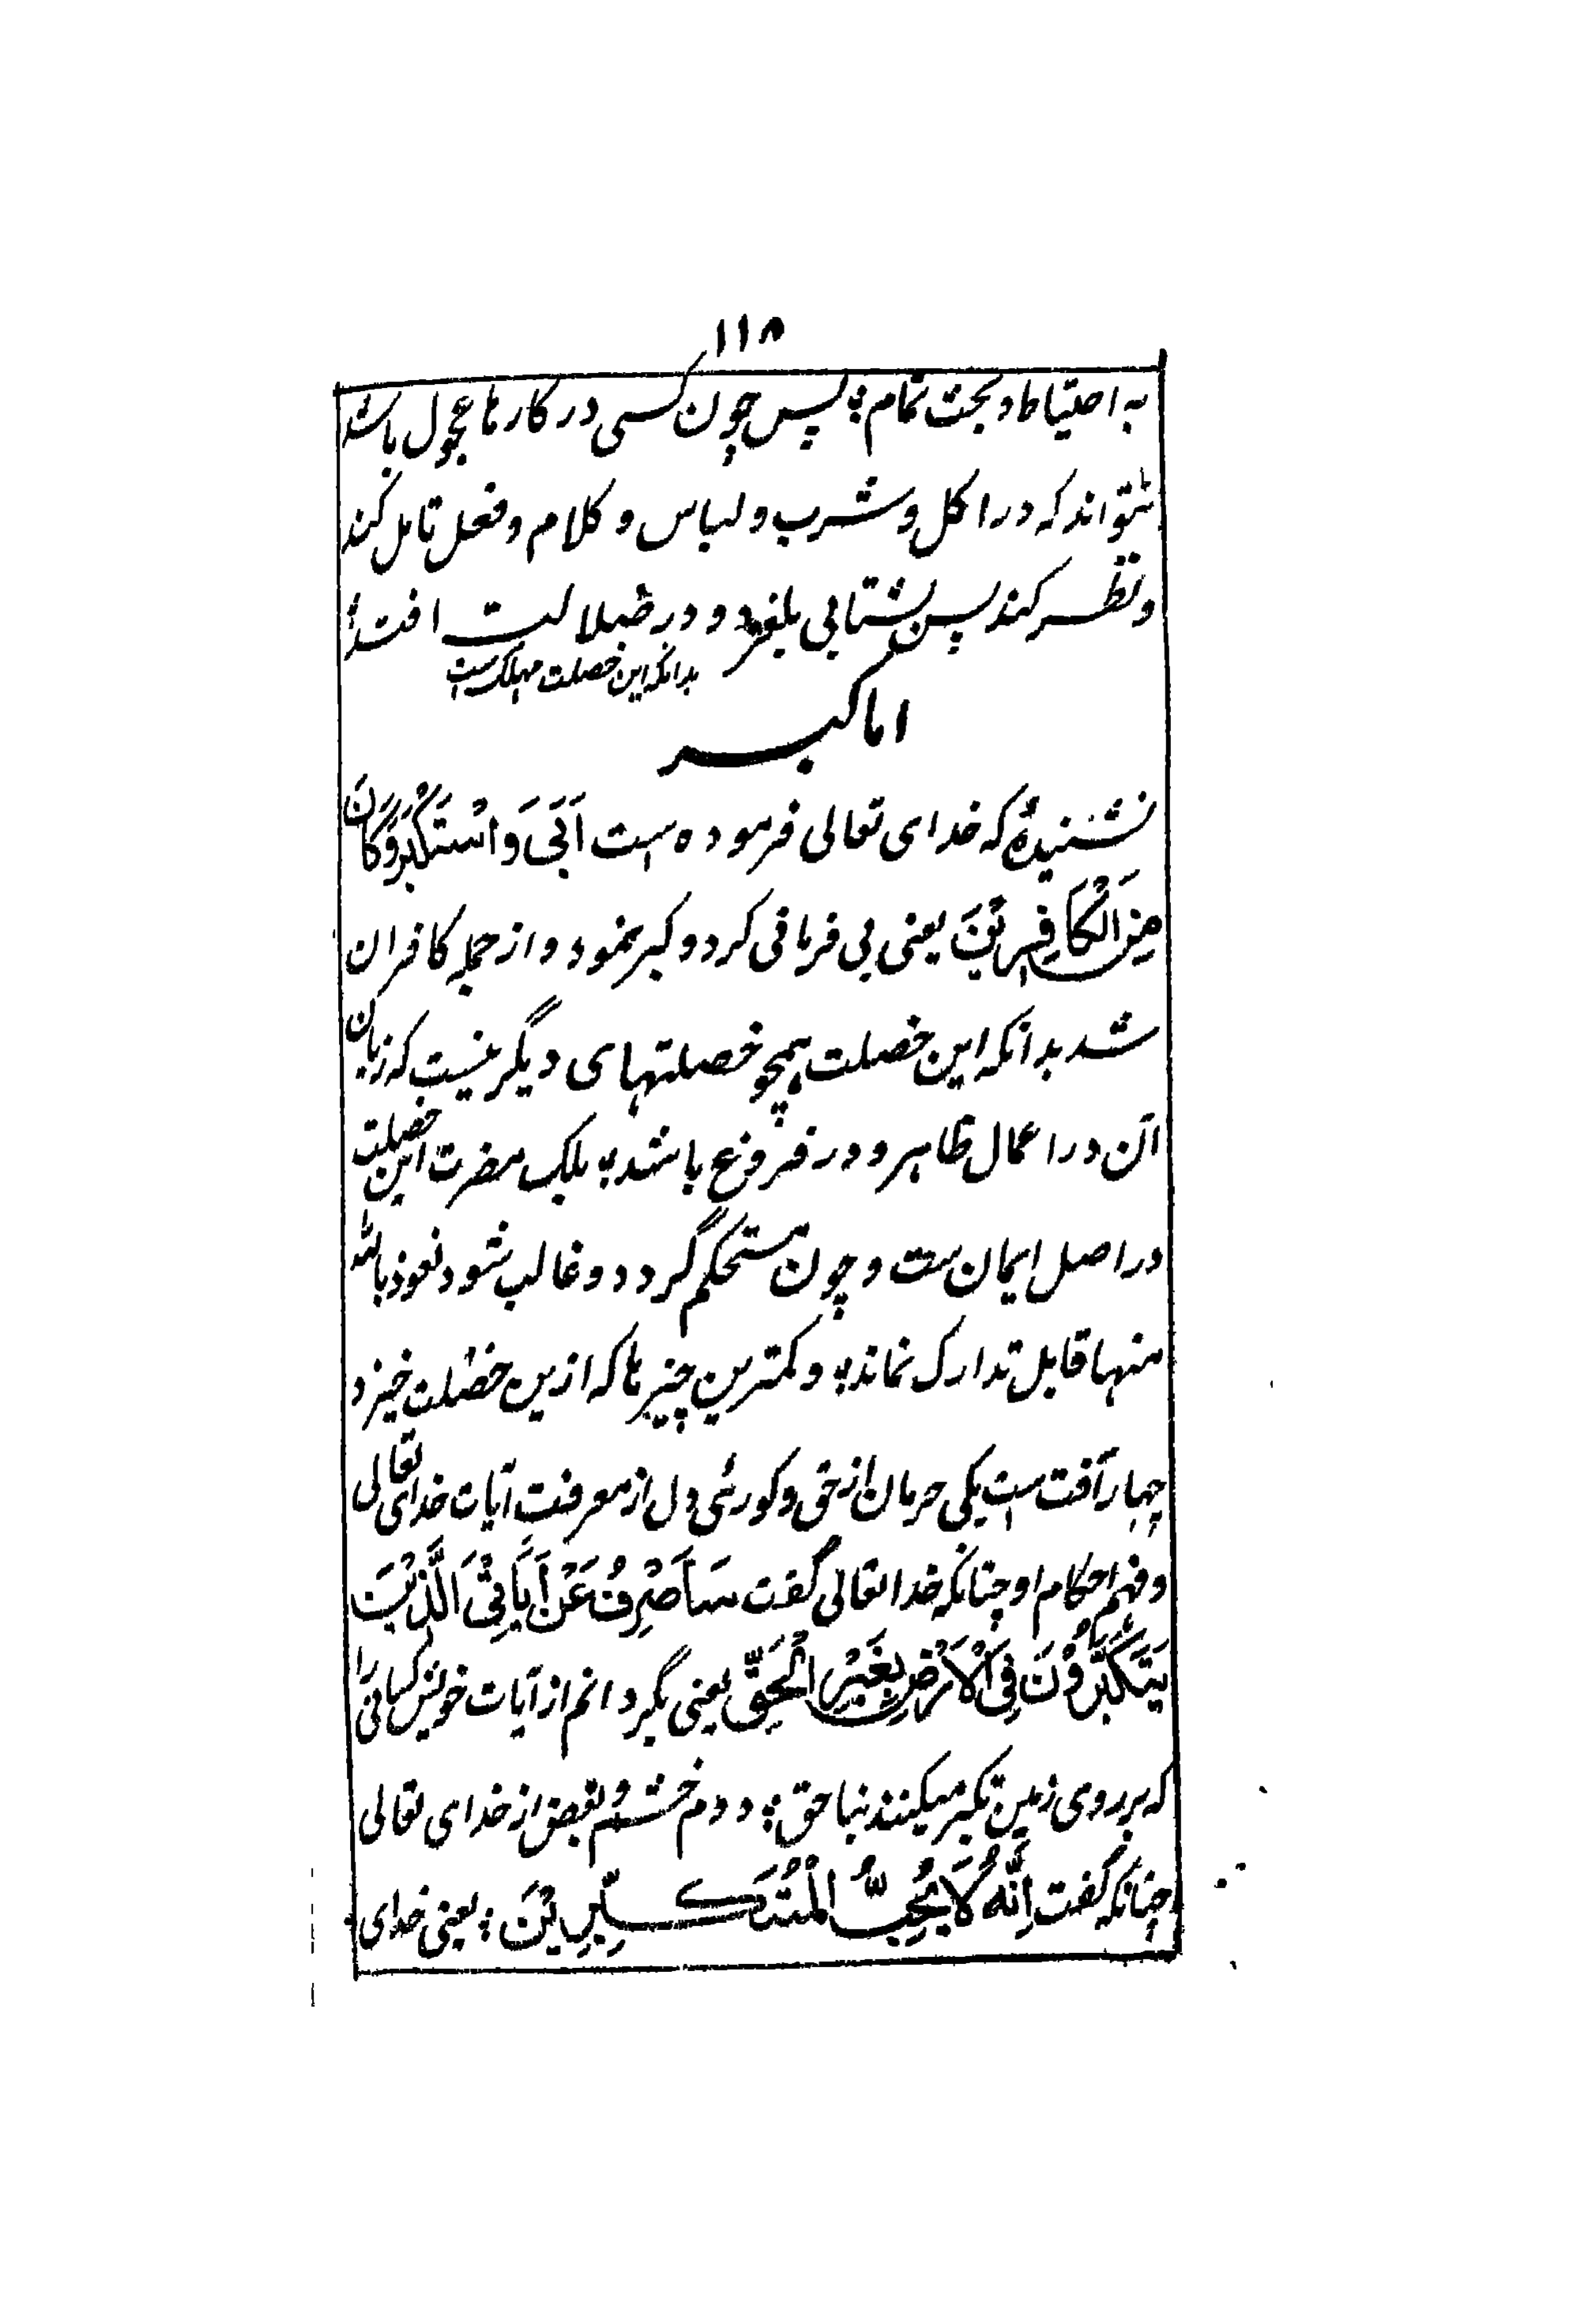 ۱۱۸
به احتیاط و بحث تمام ؛ پس چون کسی در کارها عجول باشد
نتواند که در اکل و شرب و لباس و کلام و فعل تامل کند
و نظر کند پس بشتابی بلغزد و در ضلالت افتد
بدانکه این خصلت مهلک است
اما کبر
نشنیدهٔ که خدای تعالی فرموده است اَبَىٰ وَاسْتَكْبَرَ وَكَانَ
مِنَ الْكَافِرِيْنَ یعنی بی فرمانی کرد و کبر نمود و از جمله کافران
شد بدانکه این خصلت همچو خصلتهای دیگر نیست که زیان
آن در اعمال ظاهر و در فروع باشد ؛ بلکه مضرت این خصلت
در اصل ایمان ست و چون مستحکم گردد و غالب شود نعوذ بالله
منها قابل تدارک نماند ؛ و کمترین چیزها که ازین خصلت خیزد
چهار آفت است یکی حرمان از حق و کورئ دل از معرفت آیات خدای تعالی
و فهم احکام او چنانکه خدا تعالی گفت سَاَصْرِفُ عَنْ اٰيَاتِىَ الَّذِيْنَ
يَتَكَبَّرُوْنَ فِى الْاَرْضِ بِغَيْرِ الْحَقِّ یعنی بگردانم از آیات خویش کسانی را
که بر روی زمین تکبر میکنند بناحق ؛ دوم خشم و بغض از خدای تعالی
چنانکه گفت اِنَّهُ لَا يُحِبُّ الْمُتَكَبِّرِيْنَ ؛ یعنی خدای